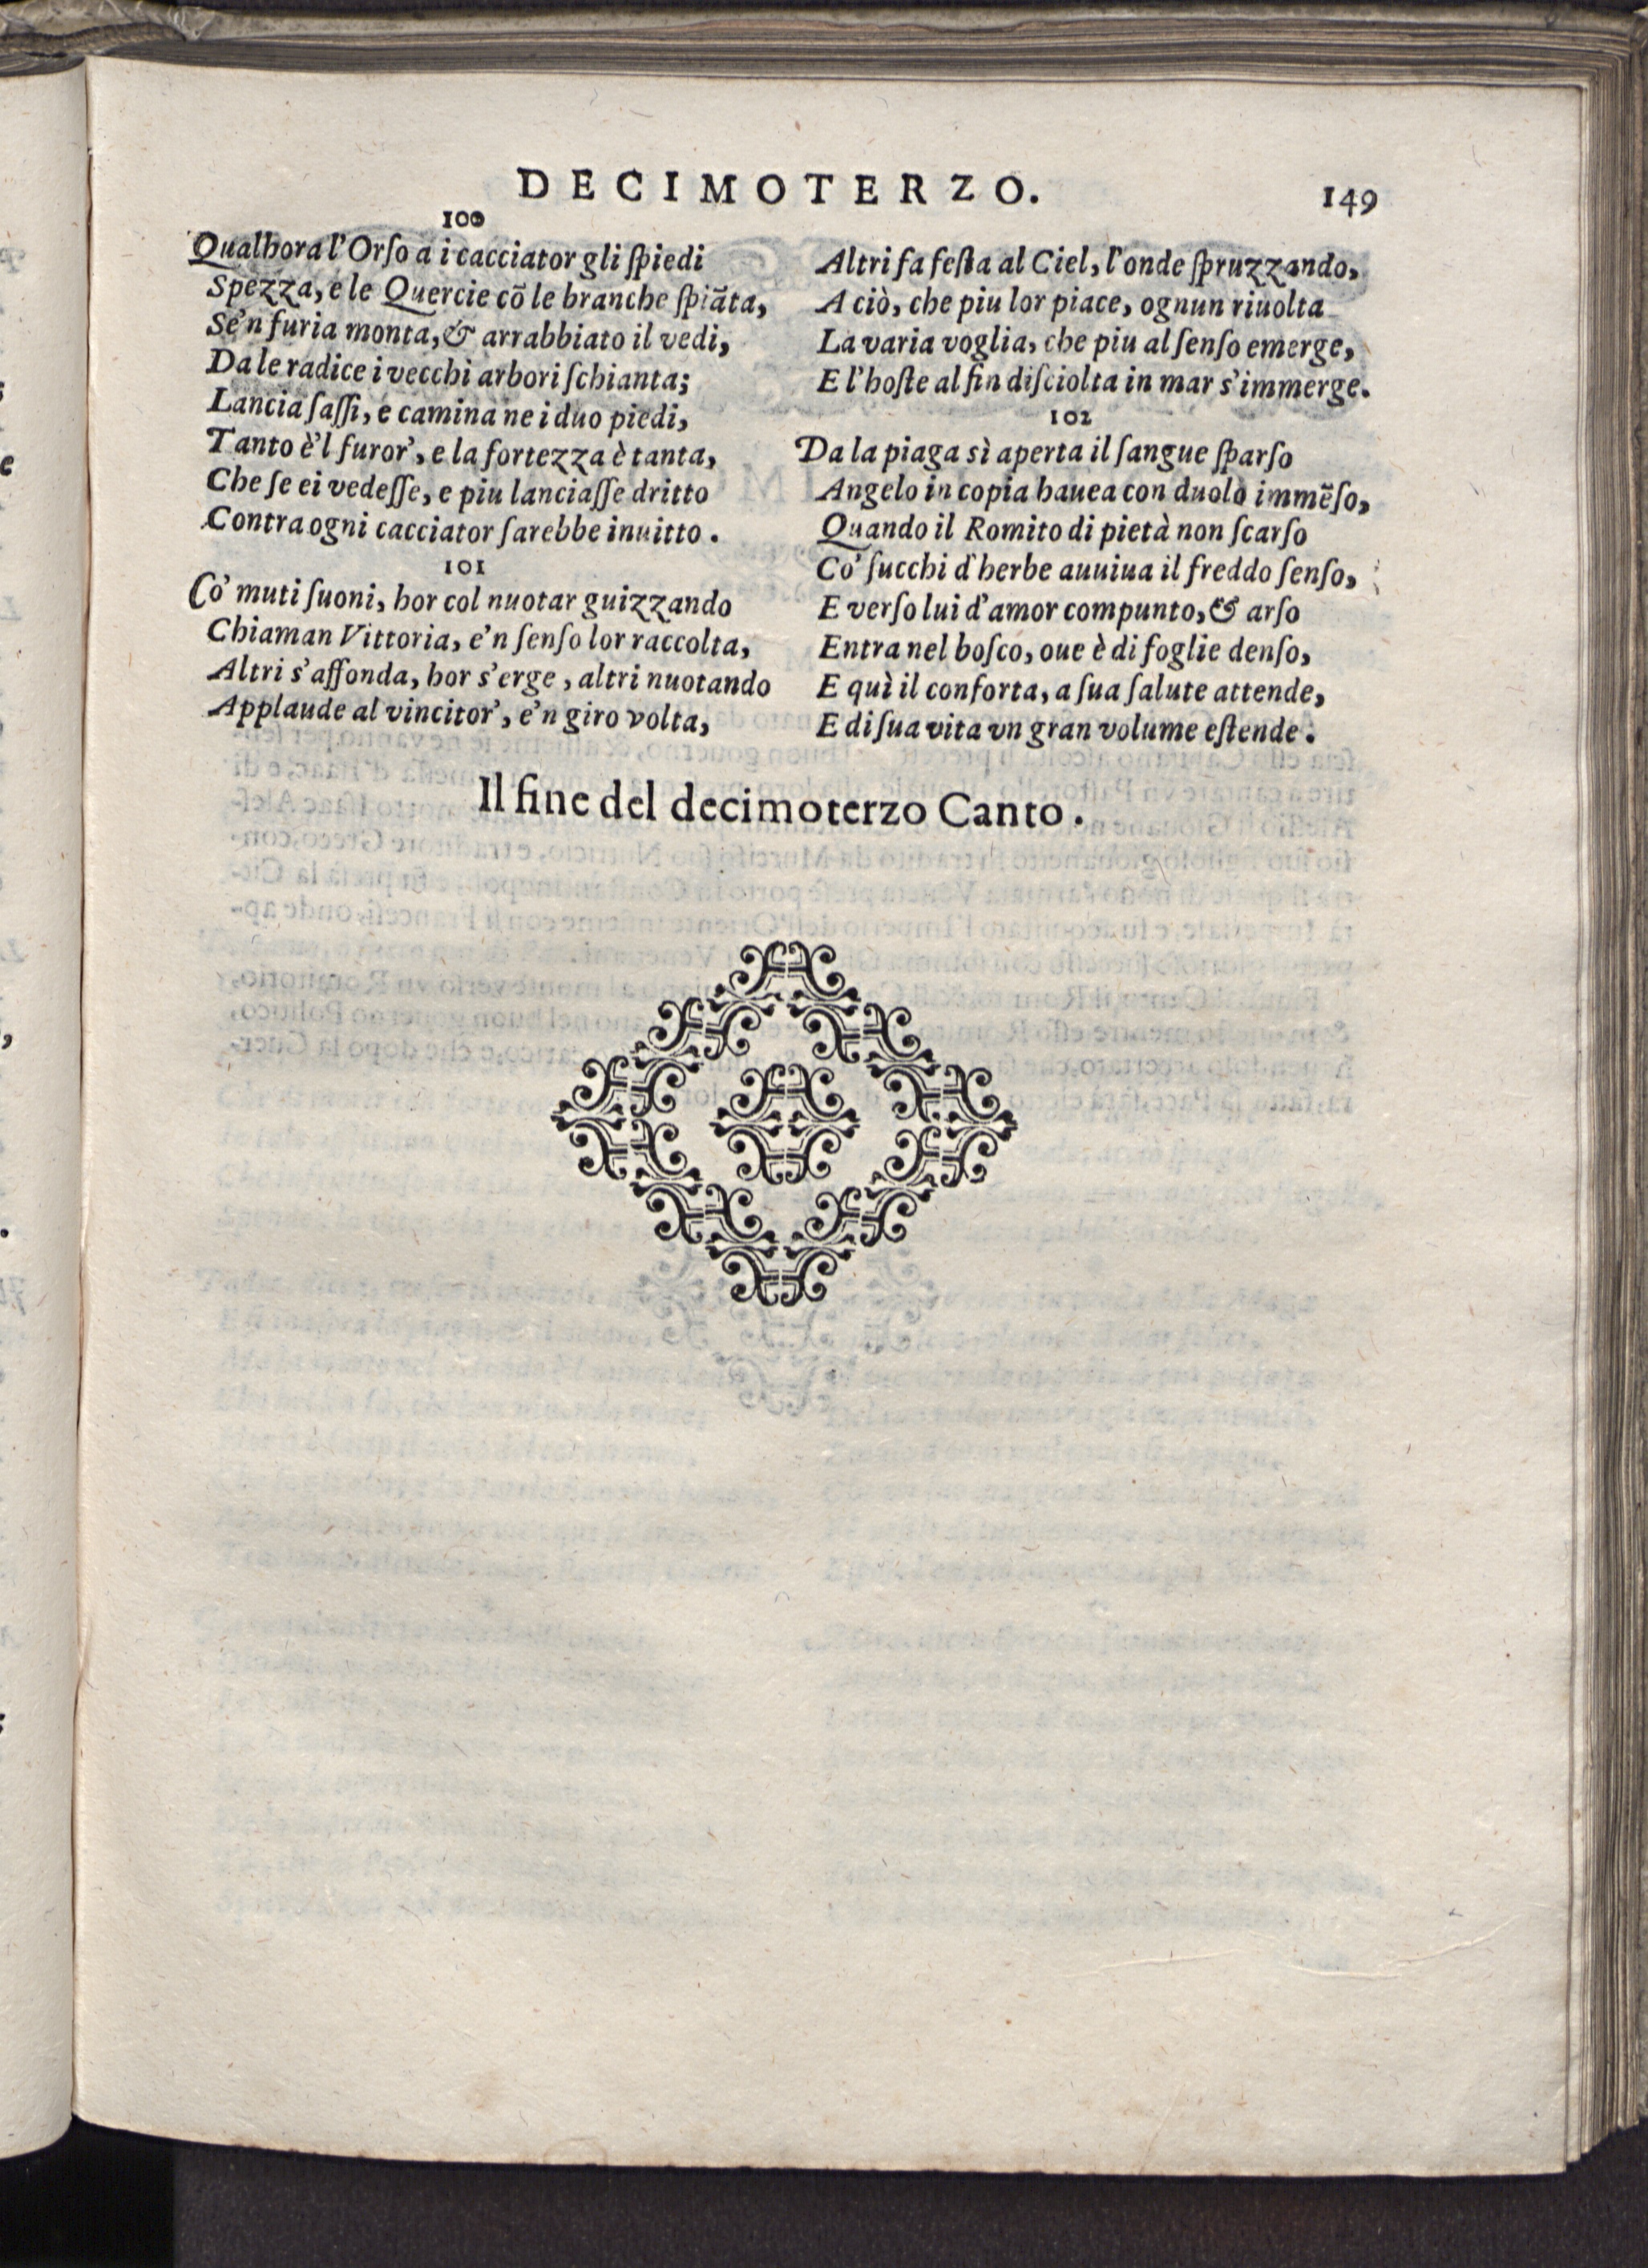 DECIMOTERZO.
149
100
Qualhora l'Orſo a i cacciator gli ſpiedi
Spezza, e le Quercie cō le branche ſpiāta,
Se'n furia monta, & arrabbiato il vedi,
Da le radice i vecchi arbori ſchianta;
Lancia ſaſſi, e camina ne i duo piedi,
Tanto è'l furor', e la fortezza è tanta,
Che ſe ei vedeſſe, e piu lanciaſſe dritto
Contra ogni cacciator ſarebbe inuitto.
101
Co' muti ſuoni, hor col nuotar guizzando
Chiaman Vittoria, e'n ſenſo lor raccolta,
Altri s'affonda, hor s'erge, altri nuotando
Applaude al vincitor', e'n giro volta,
Altri fa feſta al Ciel, l'onde ſpruzzando,
A ciò, che piu lor piace, ognun riuolta
La varia voglia, che piu al ſenſo emerge,
E l'hoſte al fin diſciolta in mar s'immerge.
102
Da la piaga sì aperta il ſangue ſparſo
Angelo in copia hauea con duolo immēſo,
Quando il Romito di pietà non ſcarſo
Co' ſucchi d'herbe auuiua il freddo ſenſo,
E verſo lui d'amor compunto, & arſo
Entra nel boſco, oue è di foglie denſo,
E quì il conforta, a ſua ſalute attende,
E di ſua vita vn gran volume eſtende.
Il fine del decimoterzo Canto.